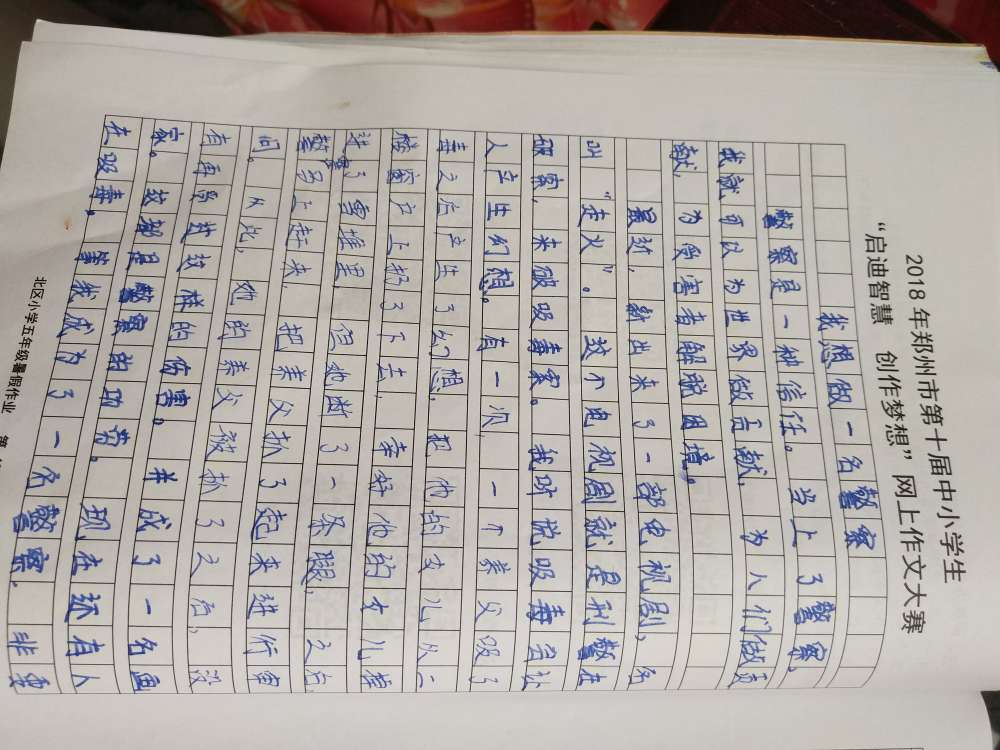 2018年郑州市第十届中小学生
“启迪智慧 创作梦想”网上作文大赛
我想做一名警察
警察是一种信任。当上了警察，
我就可以为世界做贡献，为人们做贡
献，为受害者解除困境。
最近，新出来了一部电视剧，名
叫“走火”。这个电视剧就是刑警在
破案，来破吸毒案。我听说吸毒会让
人产生幻想。有一次，一个养父吸了
毒之后产生了幻想，把他的女儿从二
楼窗户上扔了下去，幸好他的女儿掉
进了雪堆里，但她断了一条腿，之后，
警察马上赶来，把养父抓了起来进行审
问。从此，她的养父被抓了之后，没
有再受过这样的伤害。并成了一名画
家。这都是警察的功劳。现在还有人
在吸毒。等我成为了一名警察，非要
北区小学五年级暑假作业